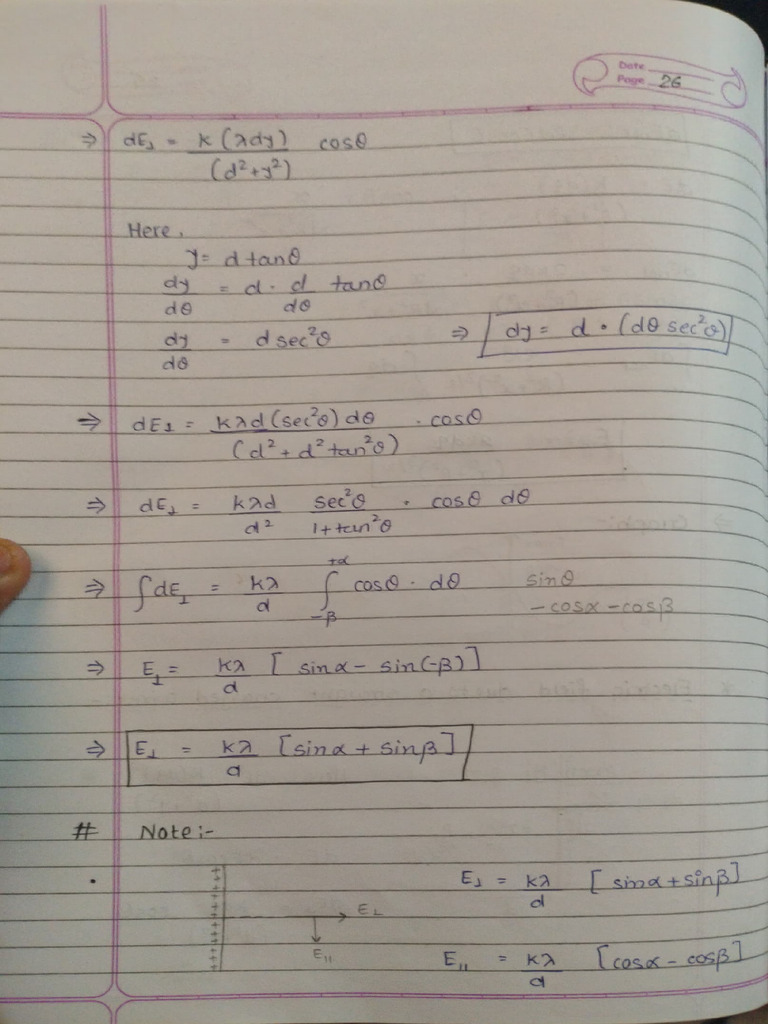 Date
Page 26
⇒ dE⊥ = k(λdy)/(d²+y²) cosθ
Here,
y = d tanθ
dy/dθ = d · d/dθ tanθ
dy/dθ = d sec²θ ⇒ dy = d • (dθ sec²θ)
⇒ dE⊥ = kλd(sec²θ)dθ/(d² + d² tan²θ) · cosθ
⇒ dE⊥ = kλd/d² sec²θ/1+tan²θ · cosθ dθ
⇒ ∫dE⊥ = kλ/d ∫_{-β}^{+α} cosθ · dθ sinθ
-cosα - cosβ
⇒ E⊥ = kλ/d [sinα - sin(-β)]
⇒ E⊥ = kλ/d [sinα + sinβ]
# Note :-
E⊥ = kλ/d [sinα + sinβ]
E⊥
E||
E|| = kλ/d [cosα - cosβ]